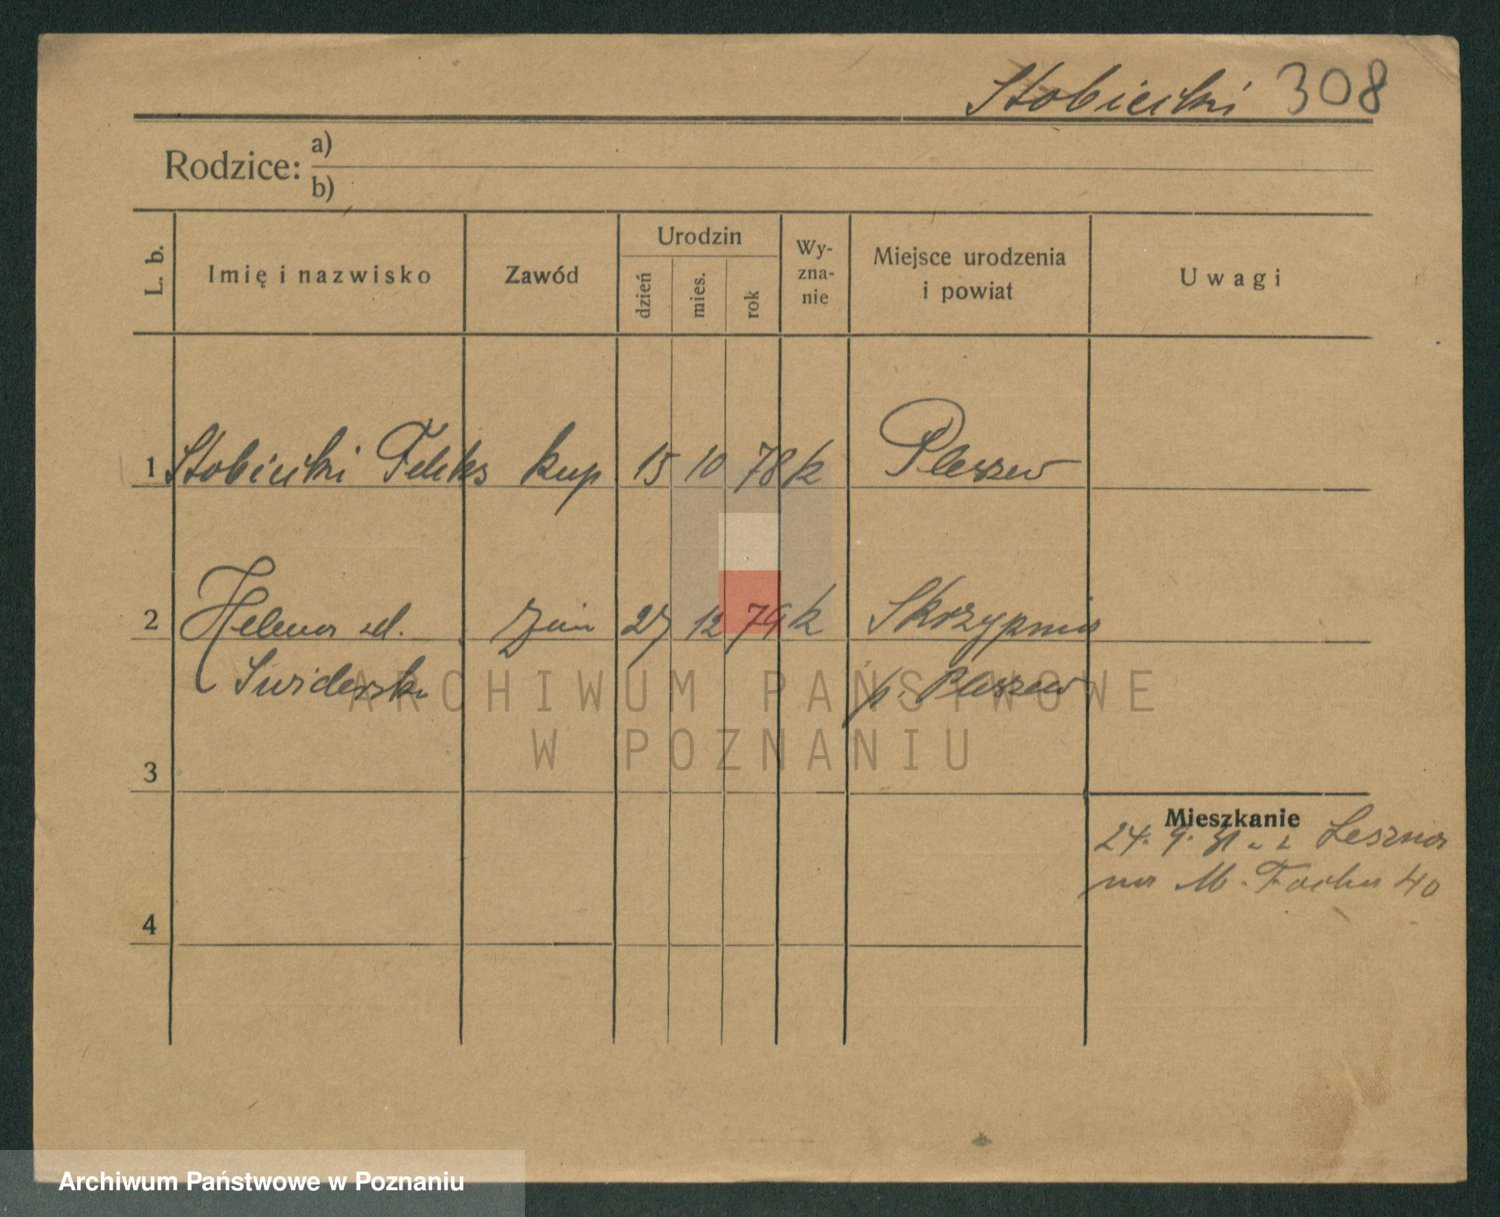 Stobiecki 308
Rodzice: a)
b)
L. b.
Imię i nazwisko
Zawód
Urodzin
dzień
mies.
rok
Wy-
zna-
nie
Miejsce urodzenia
i powiat
Uwagi
1 Stobiecki Feliks kup 15 10 78 k Pleszew
2 Helena zd. 27 12 79 k Skrzypnia
Świderska p. Pleszew
ARCHIWUM PAŃSTWOWE
W POZNANIU
3
Mieszkanie
24. 9. 31 z Leszna
na M. Focha 40
4
Archiwum Państwowe w Poznaniu